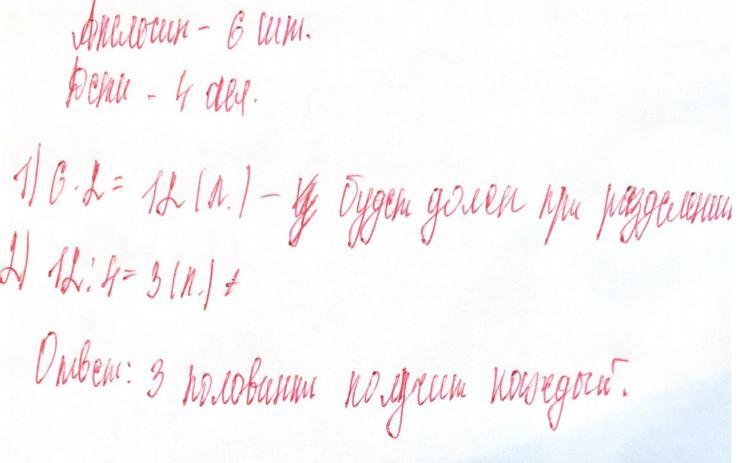 Апельсин - 6 шт.
Гости - 4 чел.
1) 6 · 2 = 12 (п.) - будет долек при разделении
2) 12 : 4 = 3 (п.)
Ответ: 3 половинки получит каждый.